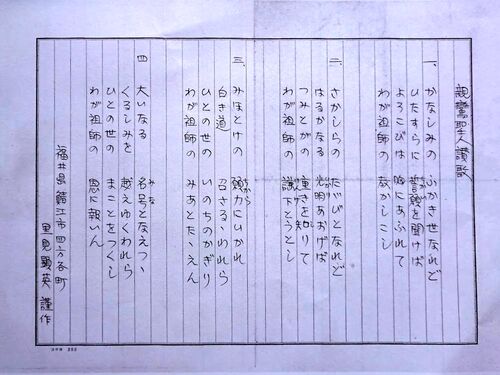 親鸞聖人讃歌
一、かなしみの ふかき世なれど
ひたすらに 誓願を聞けば
よろこびは 胸にあふれて
わが祖師の 教かしこし
二、さかしらの たびびとなれど
はるかなる 光明あおげば
つみとがの 重き知りて
わが祖師の 謙下とうとし
三、みほとけの 願力にひかれ
白き道 召さるゝわれら
ひとの世の いのちのかぎり
わが祖師の みあとたゝえん
四 大いなる 名号となえつゝ
くるしみを 越えゆくわれら
ひとの世の まことをつくし
わが祖師の 恩に報いん
福井県鯖江市四方谷町
里見顕英 謹作